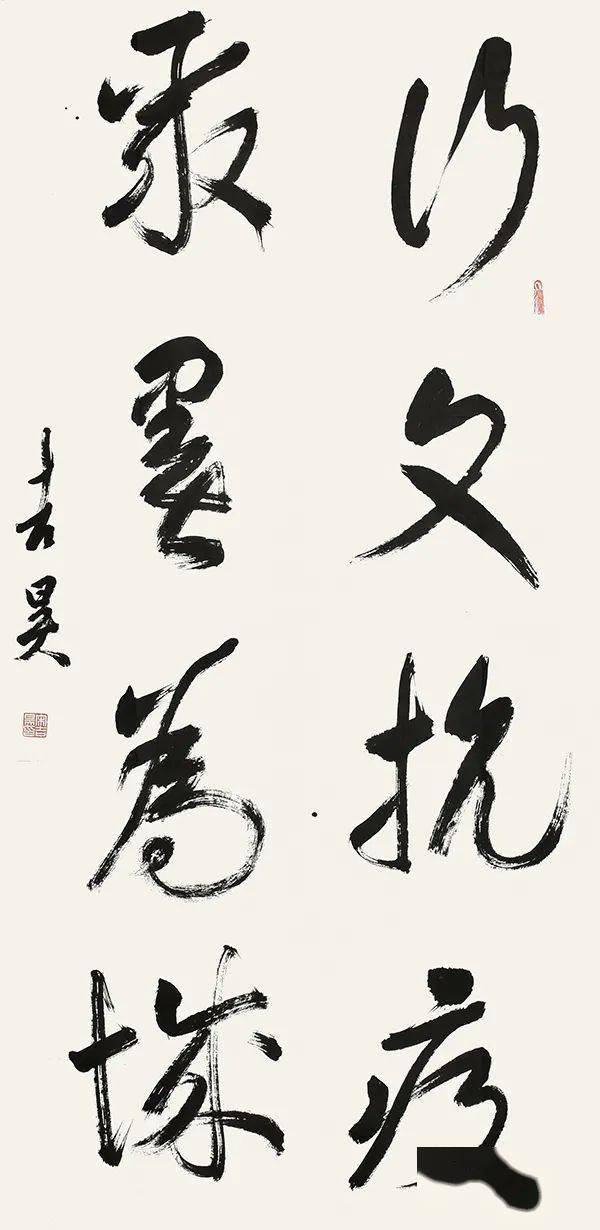 以文抗疫
聚墨為城
吉昊